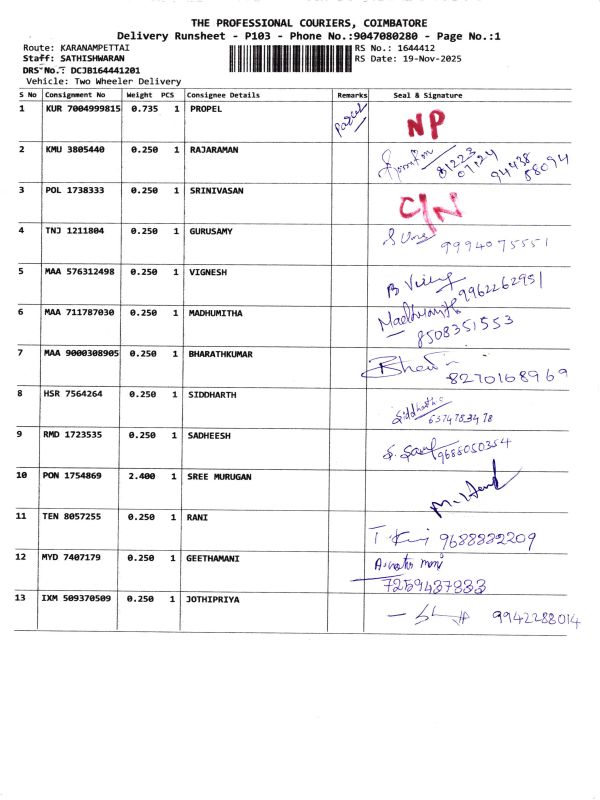 THE PROFESSIONAL COURIERS, COIMBATORE
Delivery Runsheet - P103 - Phone No.:9047080280 - Page No.:1
Route: KARANAMPETTAI RS No.: 1644412
Staff: SATHISHWARAN RS Date: 19-Nov-2025
DRS No.: DCJB164441201
Vehicle: Two Wheeler Delivery
S No Consignment No Weight PCS Consignee Details Remarks Seal & Signature
1 KUR 7004999815 0.735 1 PROPEL NP
2 KMU 3805440 0.250 1 RAJARAMAN 81223 07124 94438 58094
3 POL 1738333 0.250 1 SRINIVASAN C/N
4 TNJ 1211804 0.250 1 GURUSAMY 9994075551
5 MAA 576312498 0.250 1 VIGNESH 9962262951
6 MAA 711787030 0.250 1 MADHUMITHA 8508351553
7 MAA 9000308905 0.250 1 BHARATHKUMAR 8270168969
8 HSR 7564264 0.250 1 SIDDHARTH Siddharth 6374783478
9 RMD 1723535 0.250 1 SADHEESH 9688050354
10 PON 1754869 2.400 1 SREE MURUGAN
11 TEN 8057255 0.250 1 RANI 9688832209
12 MYD 7407179 0.250 1 GEETHAMANI 7259437833
13 IXM 509370509 0.250 1 JOTHIPRIYA 9942288014